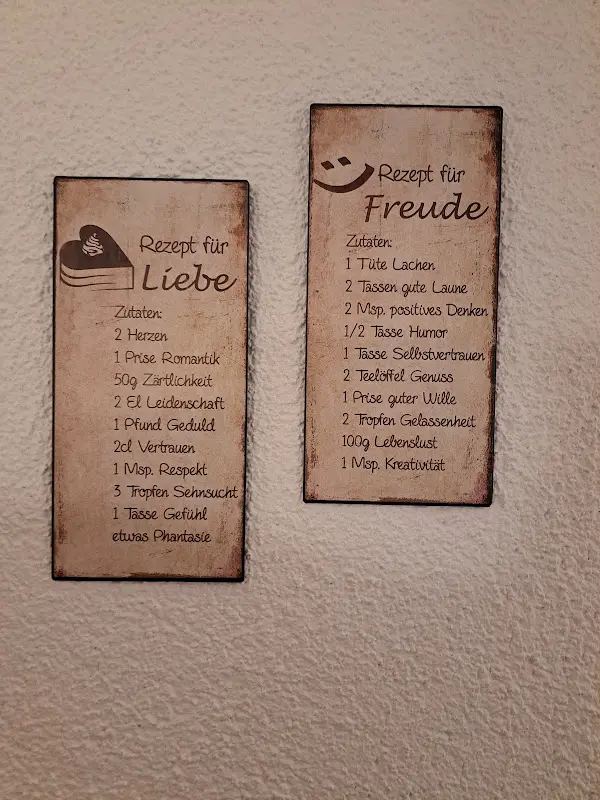 Rezept für
Liebe
Zutaten:
2 Herzen
1 Prise Romantik
50g Zärtlichkeit
2 El Leidenschaft
1 Pfund Geduld
2cl Vertrauen
1 Msp. Respekt
3 Tropfen Sehnsucht
1 Tasse Gefühl
etwas Phantasie
Rezept für
Freude
Zutaten:
1 Tüte Lachen
2 Tassen gute Laune
2 Msp. positives Denken
1/2 Tasse Humor
1 Tasse Selbstvertrauen
2 Teelöffel Genuss
1 Prise guter Wille
2 Tropfen Gelassenheit
100g Lebenslust
1 Msp. Kreativität